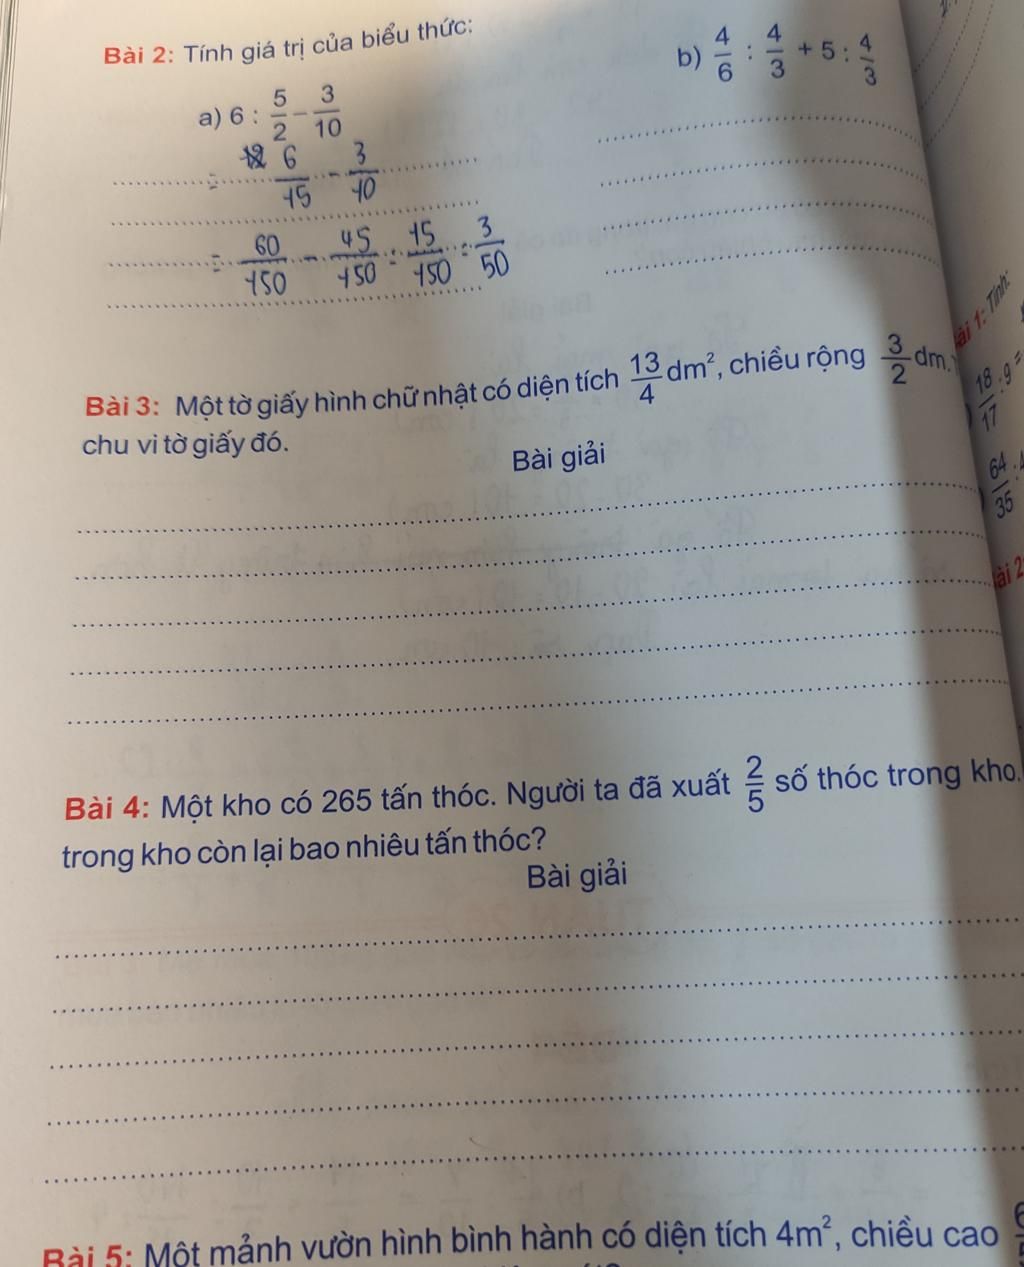 Bài 2: Tính giá trị của biểu thức:
a) 6 : 5/2 - 3/10
= 6/15 - 3/10
= 60/150 - 45/150 = 15/150 = 3/50
b) 4/6 : 4/3 + 5 : 4/3
Bài 3: Một tờ giấy hình chữ nhật có diện tích 13/4 dm², chiều rộng 3/2 dm.
chu vi tờ giấy đó.
Bài giải
Bài 4: Một kho có 265 tấn thóc. Người ta đã xuất 2/5 số thóc trong kho.
trong kho còn lại bao nhiêu tấn thóc?
Bài giải
Bài 5: Một mảnh vườn hình bình hành có diện tích 4m², chiều cao
ài 1: Tính:
18/17 : 9 =
64/35 :
ài 2